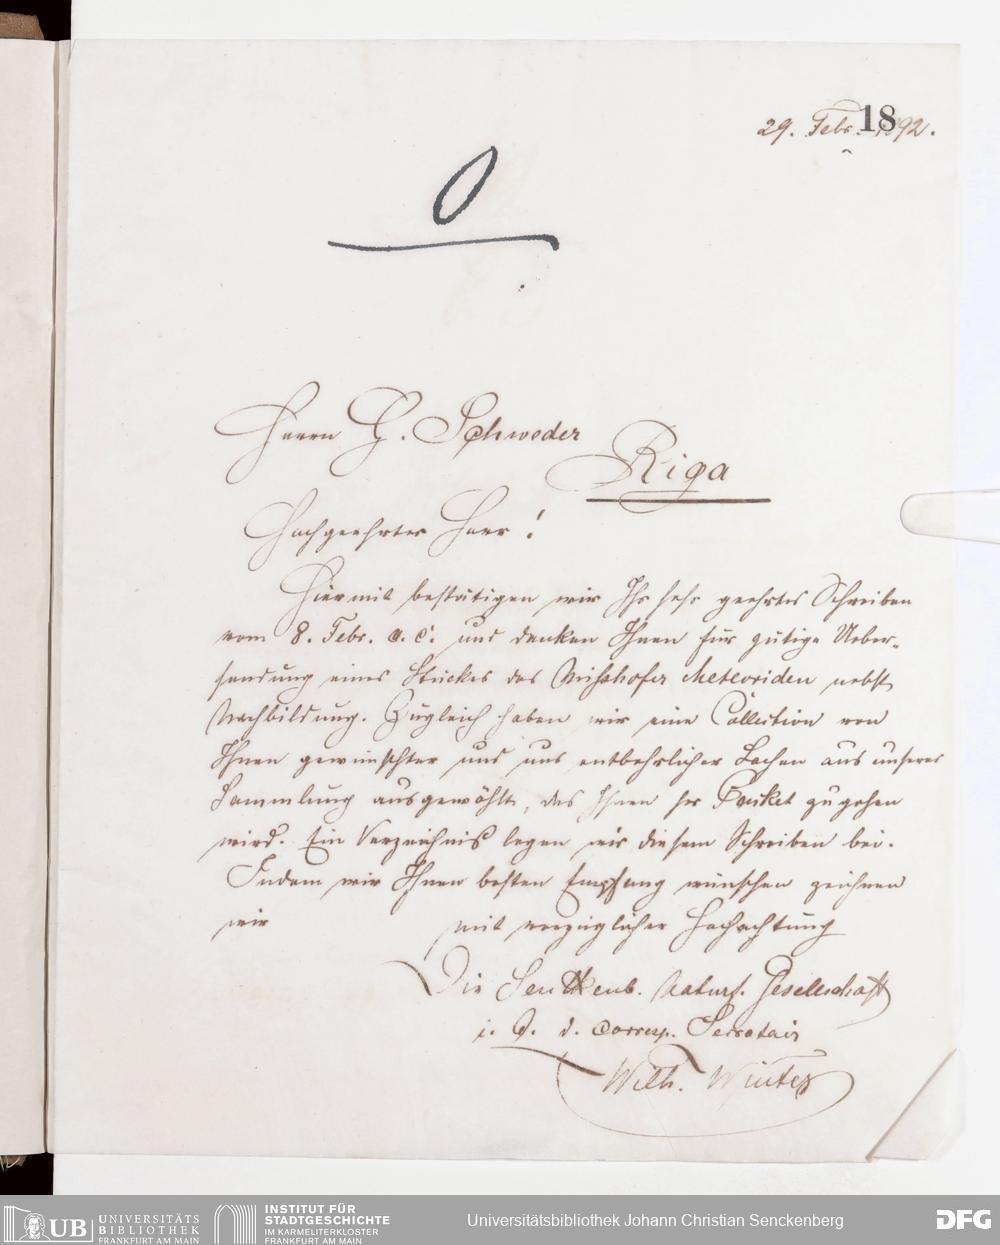 18
29. Febr. 1892.
Herrn G. Schweder
Riga
Hochgeehrter Herr!
Hiermit bestätigen wir Ihr sehr geehrtes Schreiben
vom 8. Febr. a. c. und danken Ihnen für gütige Ueber-
sendung eines Stückes des Misshofer Meteoriden nebst
Nachbildung. Zugleich haben wir eine Collection von
Ihnen gewünschter und uns entbehrlicher Sachen aus unserer
Sammlung ausgewählt, das Ihnen per Packet zugehen
wird. Ein Verzeichniß legen wir diesem Schreiben bei.
Indem wir Ihnen besten Empfang wünschen zeichnen
wir mit vorzüglicher Hochachtung
Die Senckenb. Naturf. Gesellschaft
i. A. d. corresp. Secretair
Wilh. Winter
UB UNIVERSITÄTS
BIBLIOTHEK
FRANKFURT AM MAIN
INSTITUT FÜR
STADTGESCHICHTE
IM KARMELITERKLOSTER
FRANKFURT AM MAIN
Universitätsbibliothek Johann Christian Senckenberg
DFG